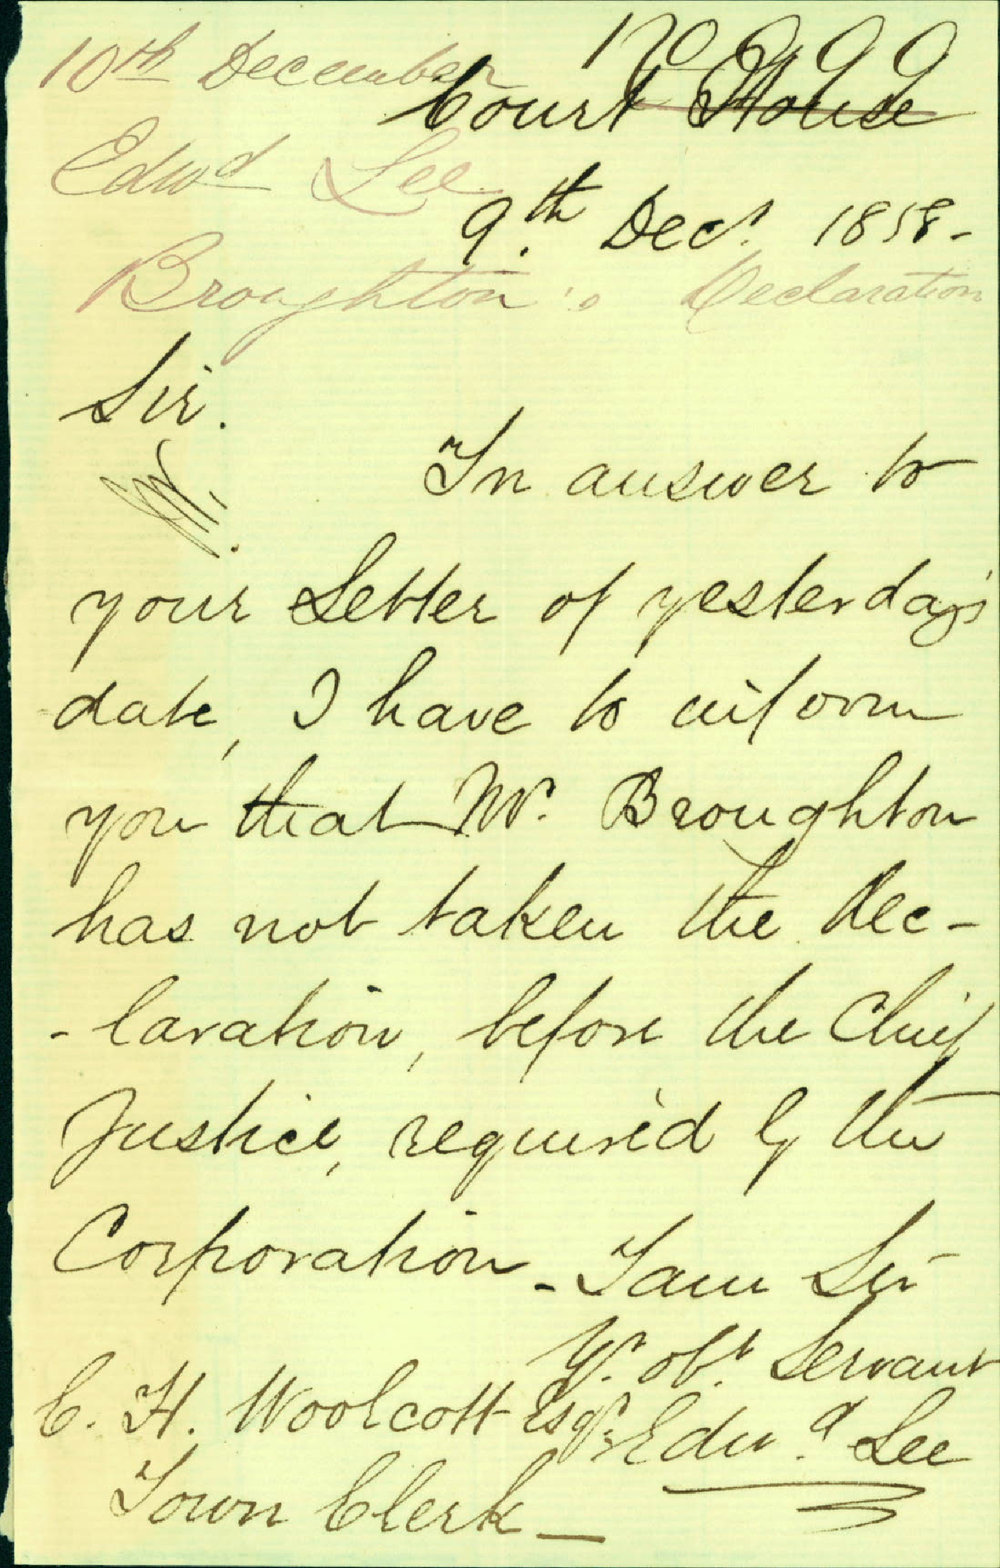 10th December
Court House
Edwd Lee
9th Decr. 1858-
Broughton's Declaration
Sir.
In answer to
your Letter of yesterday's
date, I have to inform
you that Mr. Broughton
has not taken the Dec-
-laration, before the Chief
Justice, required by the
Corporation - I am Sir
Yr. obt. Servant
C. H. Woolcott Esqr. Edwd. Lee
Town Clerk -